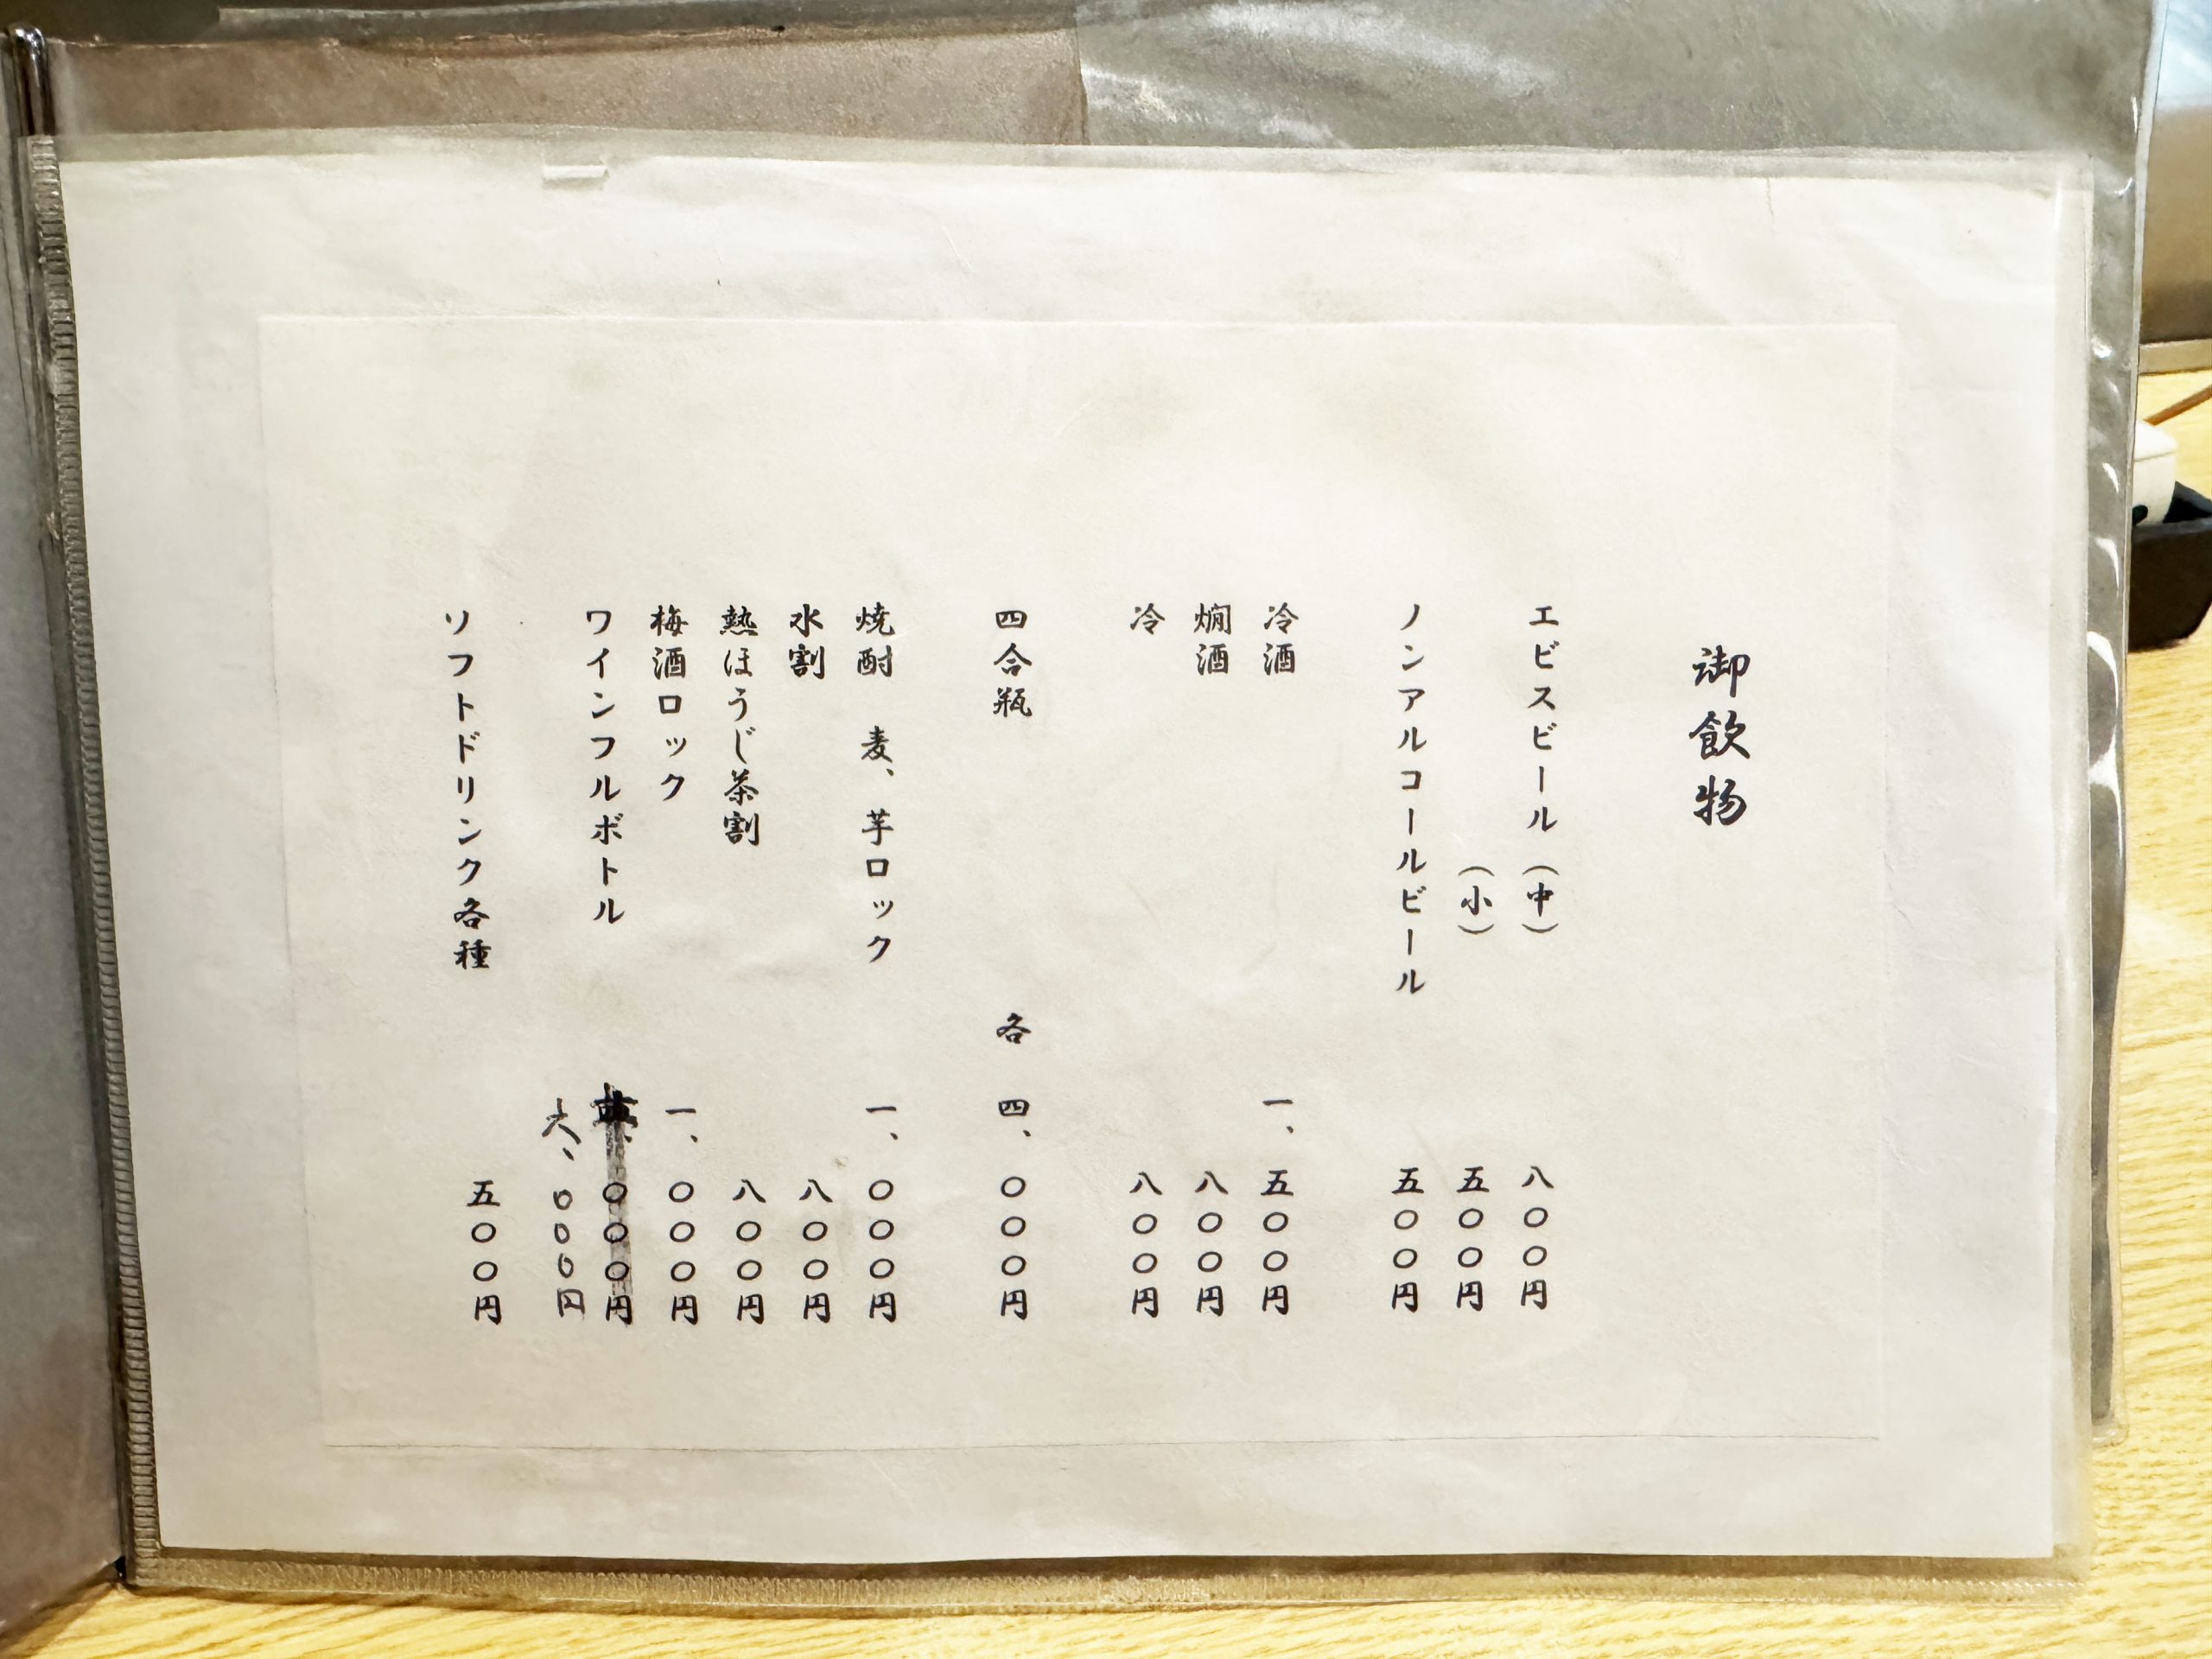 御飲物
エビスビール(中) 八〇〇円
(小) 五〇〇円
ノンアルコールビール 五〇〇円
冷酒 一、五〇〇円
燗酒 八〇〇円
冷 八〇〇円
四合瓶 各 四、〇〇〇円
焼酎 麦、芋ロック 一、〇〇〇円
水割 八〇〇円
熱ほうじ茶割 八〇〇円
梅酒ロック 一、〇〇〇円
ワインフルボトル 〇〇〇円
六、〇〇〇円
ソフトドリンク各種 五〇〇円